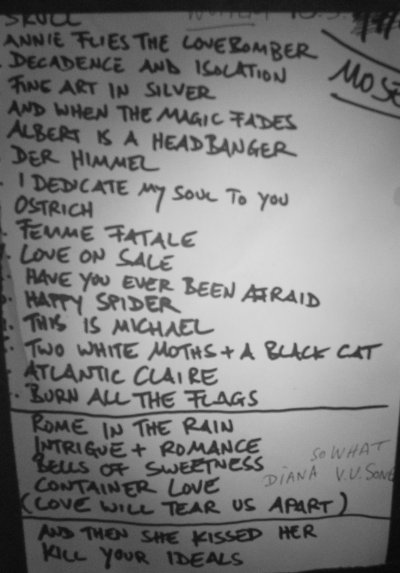 SKULL
ANNIE FLIES THE LOVEBOMBER
DECADENCE AND ISOLATION
FINE ART IN SILVER
AND WHEN THE MAGIC FADES
ALBERT IS A HEADBANGER
DER HIMMEL
I DEDICATE MY SOUL TO YOU
OSTRICH
FEMME FATALE
LOVE ON SALE
HAVE YOU EVER BEEN AFRAID
HAPPY SPIDER
THIS IS MICHAEL
TWO WHITE MOTHS + A BLACK CAT
ATLANTIC CLAIRE
BURN ALL THE FLAGS
ROME IN THE RAIN
INTRIGUE + ROMANCE
BELLS OF SWEETNESS
CONTAINER LOVE
(LOVE WILL TEAR US APART)
SO WHAT
DIANA V.U. SONG
AND THEN SHE KISSED HER
KILL YOUR IDEALS